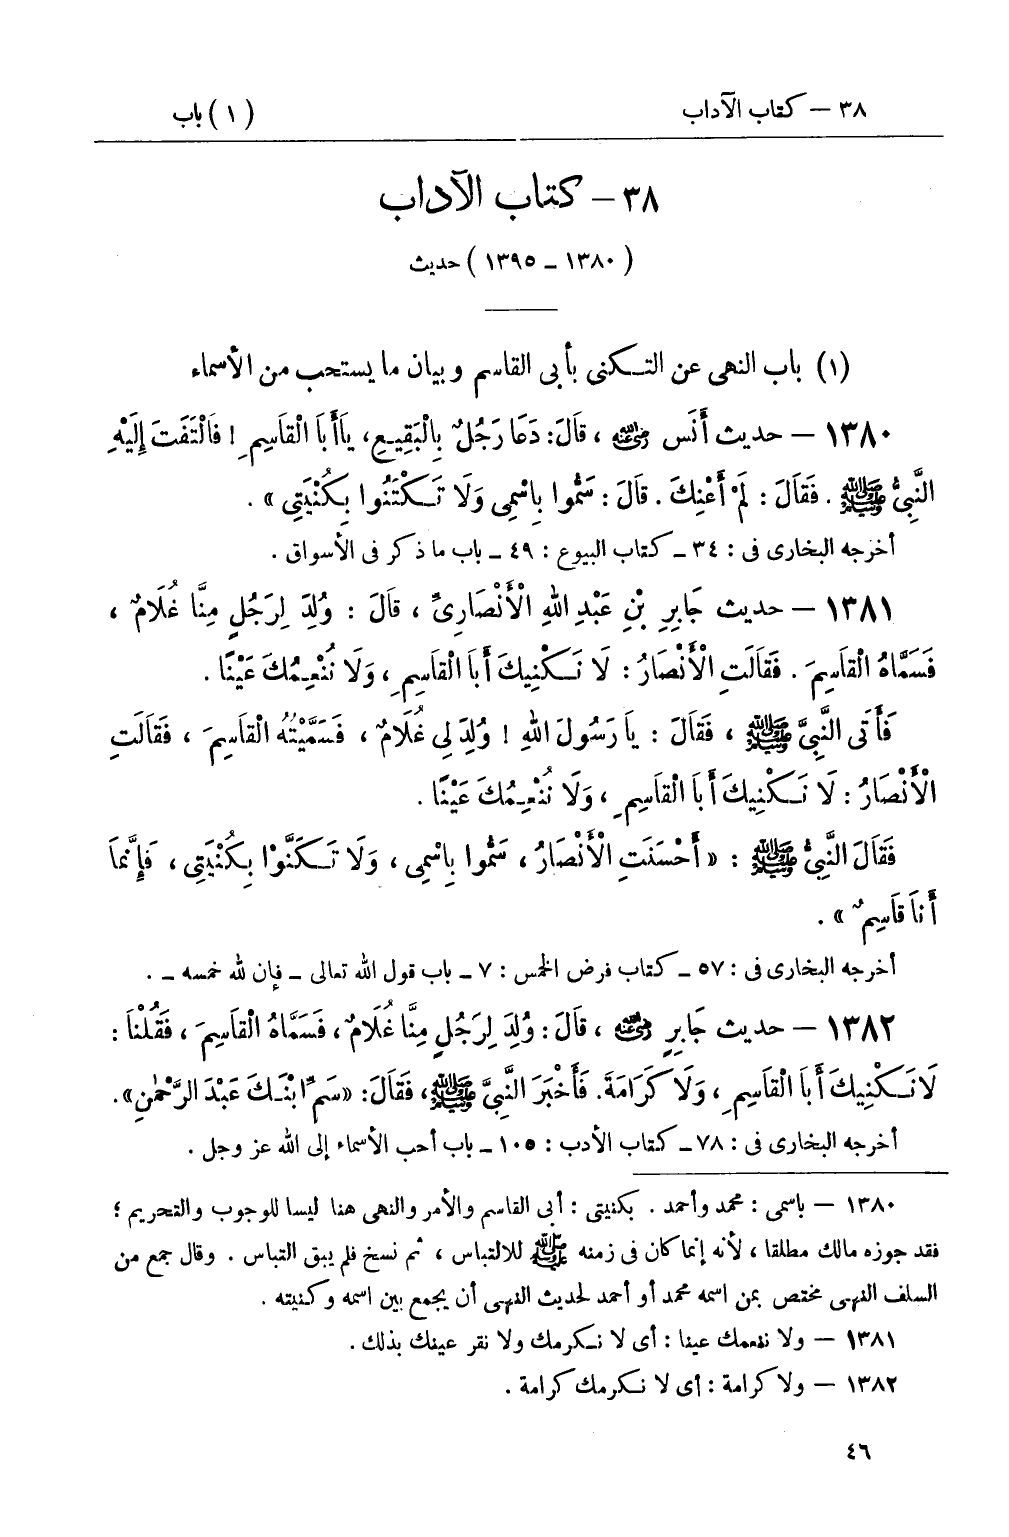 ٣٨ — كتاب الآداب
( ١ ) باب
٣٨ — كتاب الآداب
( ١٣٨٠ ـ ١٣٩٥ ) حديث
(١) باب النهى عن التكنى بأبى القاسم وبيان ما يستحب من الأسماء
١٣٨٠ — حديث أَنَس رضي الله عنه ، قَالَ: دَعَا رَجُلٌ بِالْبَقِيعِ، يَا أَبَا الْقَاسِمِ ! فَالْتَفَتَ إِلَيْهِ
النَّبِىُّ ﷺ . فَقَالَ : لَمْ أَعْنِكَ . قَالَ : سَمُّوا بِاسْمِى وَلَا تَكْتَنُوا بِكُنْيَتِى » .
أخرجه البخارى فى : ٣٤ ـ كتاب البيوع : ٤٩ ـ باب ما ذكر فى الأسواق .
١٣٨١ — حديث جَابِرِ بْنِ عَبْدِ اللهِ الْأَنْصَارِىِّ ، قَالَ : وُلِدَ لِرَجُلٍ مِنَّا غُلَامٌ ،
فَسَمَّاهُ الْقَاسِمَ . فَقَالَتِ الْأَنْصَارُ : لَا نَكْنِيكَ أَبَا الْقَاسِمِ ، وَلَا نُنْعِمُكَ عَيْنًا .
فَأَتَى النَّبِىَّ ﷺ ، فَقَالَ : يَا رَسُولَ اللهِ ! وُلِدَ لِى غُلَامٌ ، فَسَمَّيْتُهُ الْقَاسِمَ ، فَقَالَتِ
الْأَنْصَارُ : لَا نَكْنِيكَ أَبَا الْقَاسِمِ ، وَلَا نُنْعِمُكَ عَيْنًا .
فَقَالَ النَّبِىُّ ﷺ : « أَحْسَنَتِ الْأَنْصَارُ ، سَمُّوا بِاسْمِى ، وَلَا تَكَنَّوْا بِكُنْيَتِى ، فَإِنَّمَا
أَنَا قَاسِمٌ » .
أخرجه البخارى فى : ٥٧ ـ كتاب فرض الخمس : ٧ ـ باب قول الله تعالى ـ فإن لله خمسه ـ .
١٣٨٢ — حديث جَابِرٍ رضي الله عنه ، قَالَ : وُلِدَ لِرَجُلٍ مِنَّا غُلَامٌ ، فَسَمَّاهُ الْقَاسِمَ ، فَقُلْنَا :
لَا نَكْنِيكَ أَبَا الْقَاسِمِ ، وَلَا كَرَامَةَ. فَأَخْبَرَ النَّبِىَّ ﷺ، فَقَالَ: «سَمِّ ابْنَكَ عَبْدَ الرَّحْمٰنِ».
أخرجه البخارى فى : ٧٨ ـ كتاب الأدب : ١٠٥ ـ باب أحب الأسماء إلى الله عز وجل .
١٣٨٠ — باسمى : محمد وأحمد . بكنيتى : أبى القاسم والأمر والنهى هنا ليسا للوجوب والتحريم ؛
فقد جوزه مالك مطلقا ، لأنه إنما كان فى زمنه ﷺ للالتباس ، ثم نسخ فلم يبق التباس . وقال جمع من
السلف النهى مختص بمن اسمه محمد أو أحمد لحديث النهى أن يجمع بين اسمه وكنيته .
١٣٨١ — ولا ننعمك عينا : أى لا نكرمك ولا نقر عينك بذلك .
١٣٨٢ — ولا كرامة : أى لا نكرمك كرامة .
٤٦